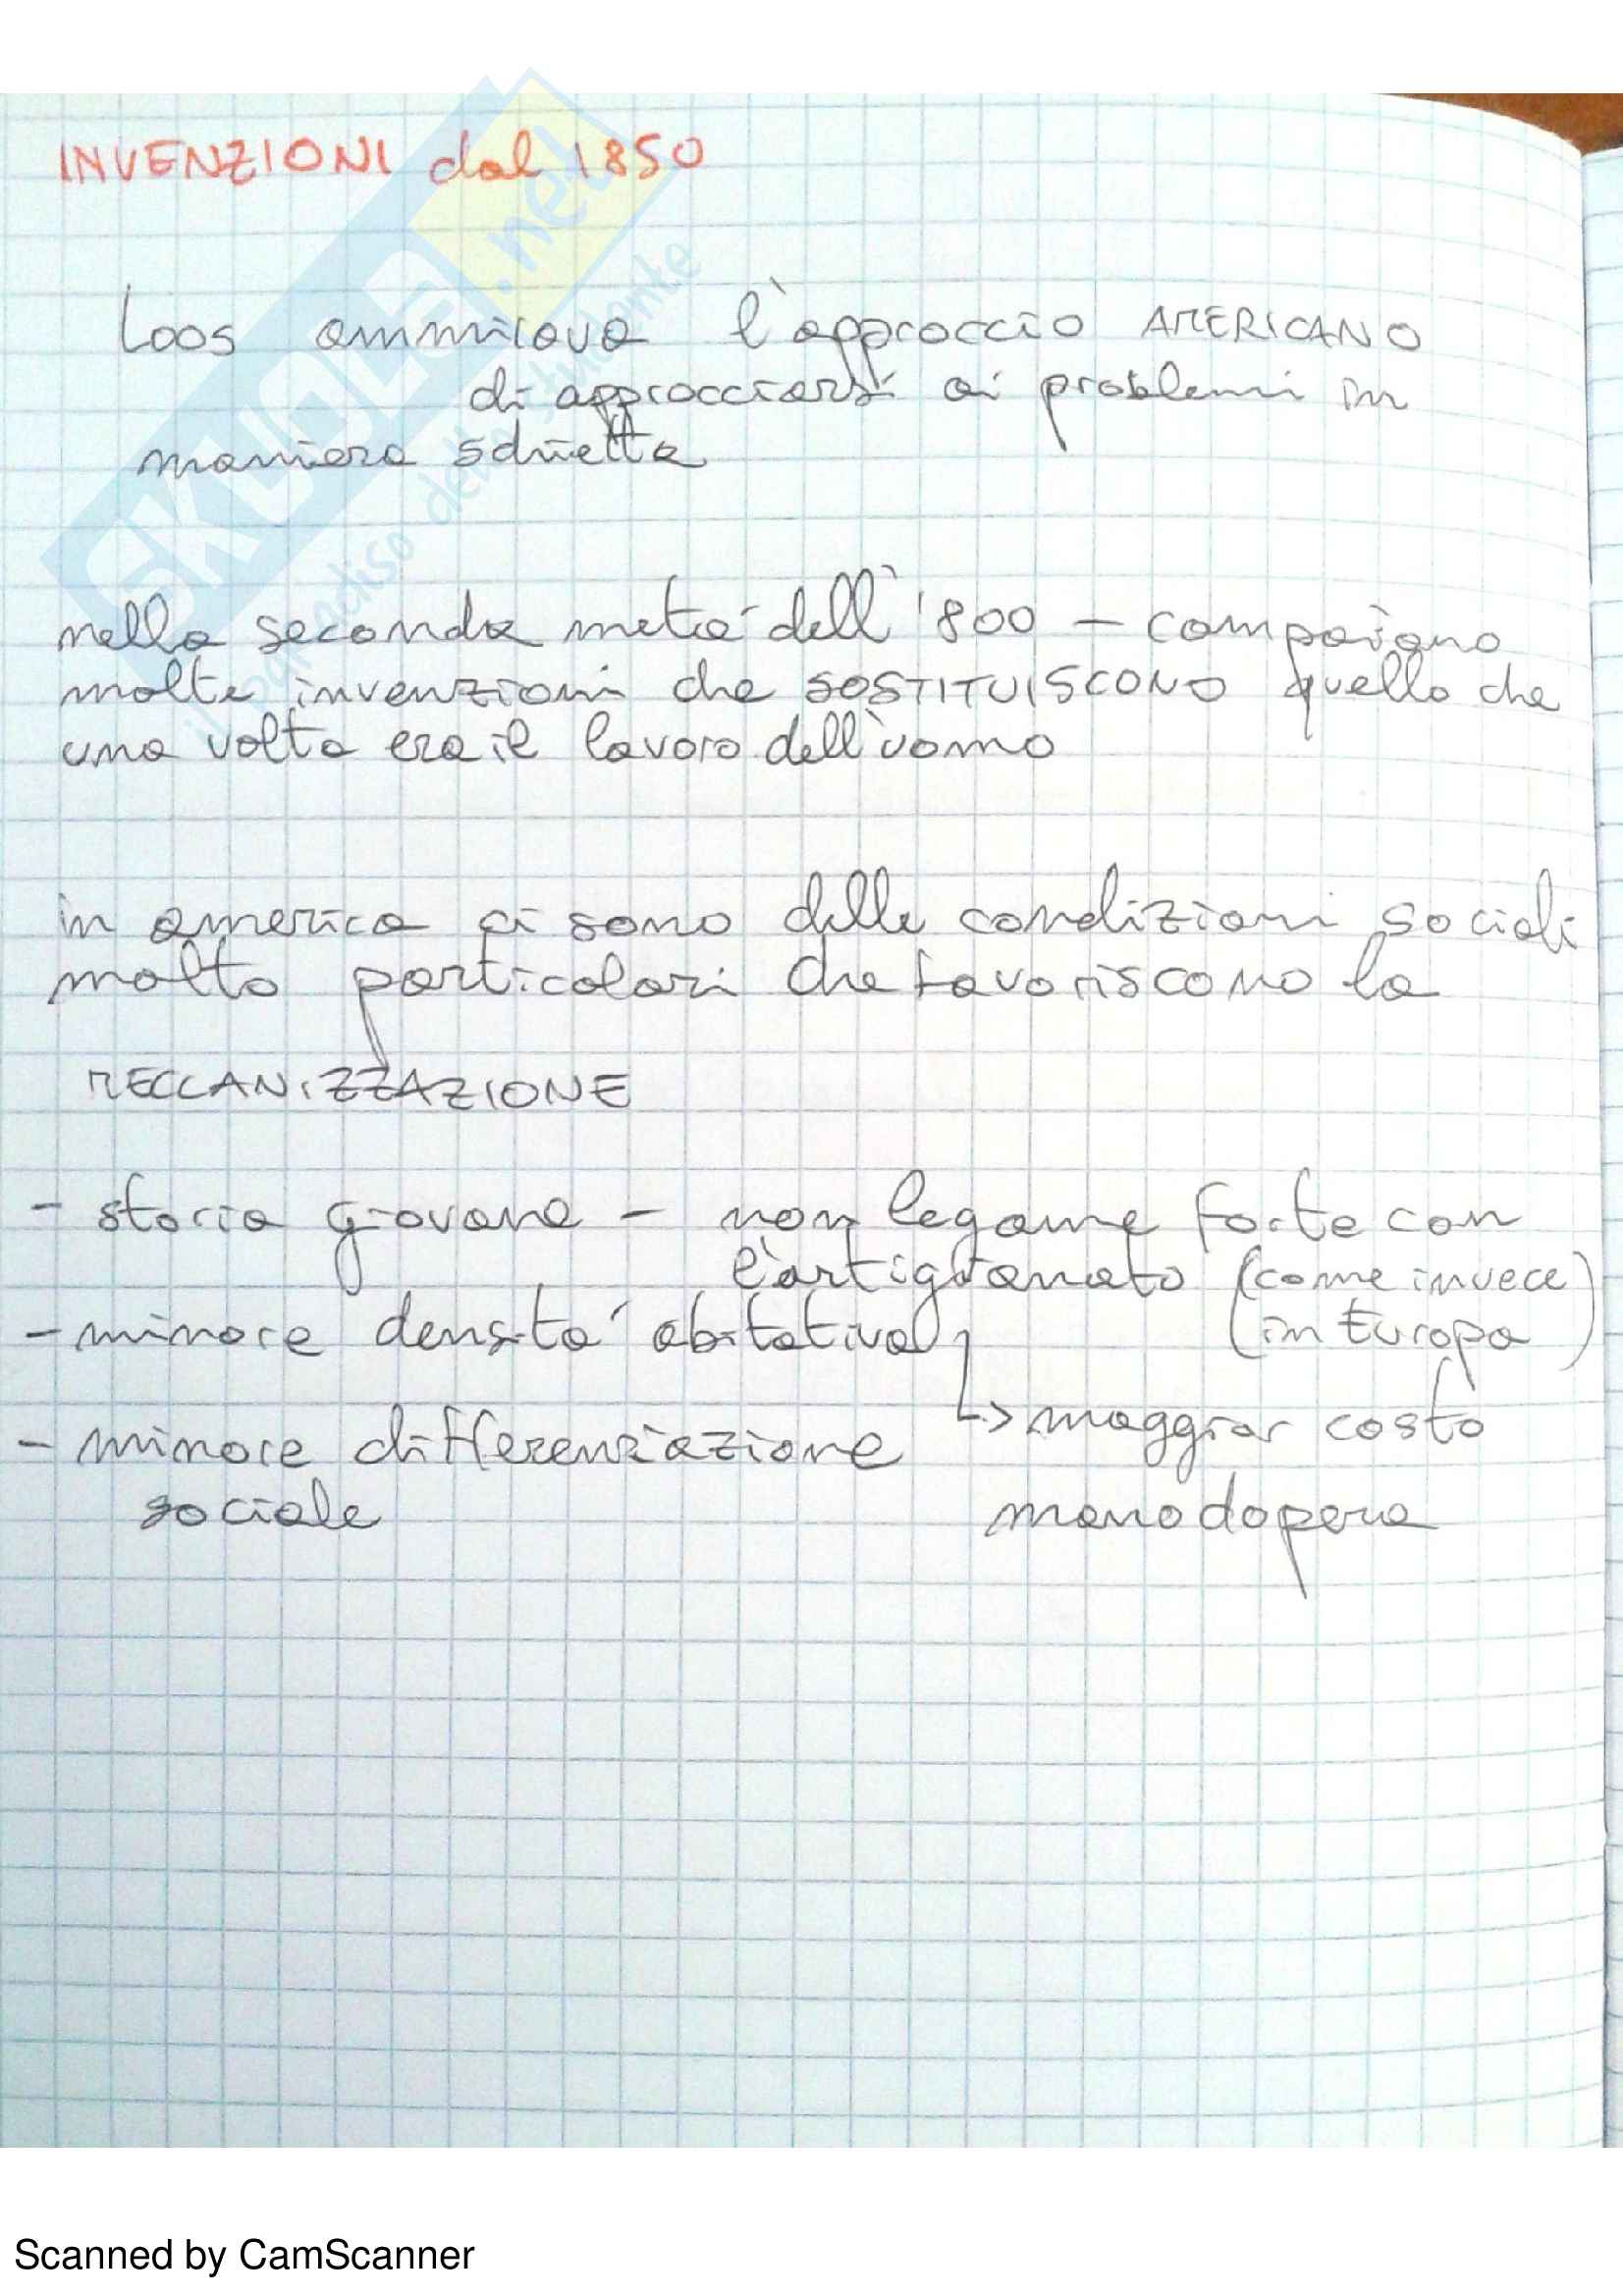 INVENZIONI dal 1850
Loos ammirava l'approccio AMERICANO
di approcciarsi ai problemi in
maniera schietta
nella seconda metà dell'800 - compaiono
molte invenzioni che SOSTITUISCONO quello che
una volta era il lavoro dell'uomo
in america ci sono delle condizioni sociali
molto particolari che favoriscono la
MECCANIZZAZIONE
- storia giovane - non legame forte con
l'artigianato (come invece
in Europa)
- minore densità abitativa
↳ maggior costo
manodopera
- minore differenziazione
sociale
SKUOLA.net
il paradiso dello studente
Scanned by CamScanner